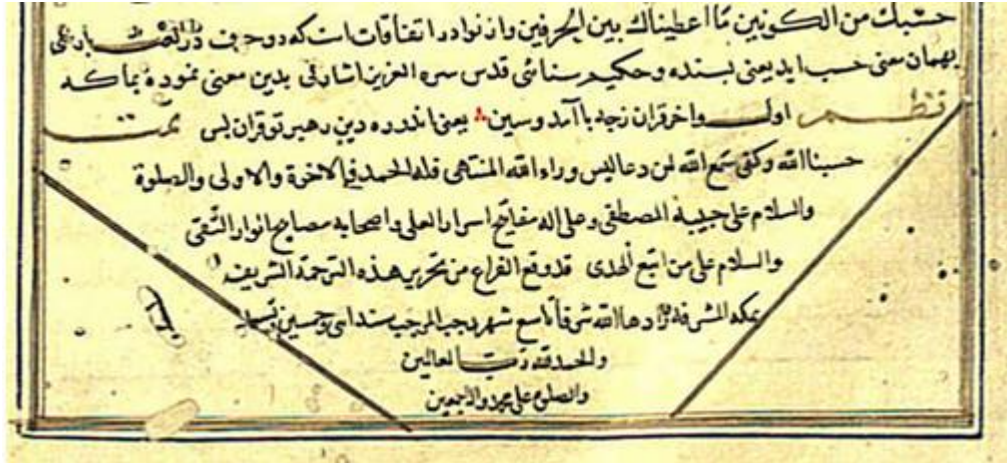 حسبك من الكونين ما اعطيناك بين الحرفين واز نوادر اتفاقات است كه دو حرف
بهمان معنی حسب آید یعنی بسنده و حكیم سنائی قدس سره العزیز اشارتی بدین معنی نموده بما كه
نظم اول و آخر قران زچه با آمد و سین یعنی اندر ره دین رهبر تو قران بس تمت
حسبنا الله وكفى سمع الله لمن دعا ليس وراء الله المنتهى فله الحمد في الاخرة والاولى والصلوة
والسلام على حبيبه المصطفى وعلى اله مفاتيح اسرار العلى واصحابه مصابيح انوار التقى
والسلام على من اتبع الهدى قد وقع الفراغ من تحرير هذه الترجمة الشريفه
بمكه المشرفة زادها الله شرفا تاسع شهر رجب المرجب سنه احدى وخمسين
والحمد لله رب العالمين
والصلوة على محمد واله اجمعين